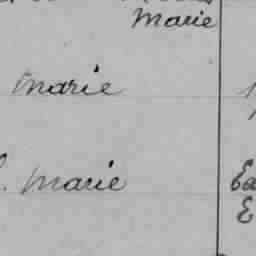 Marie
Marie
. Marie
Ea
E